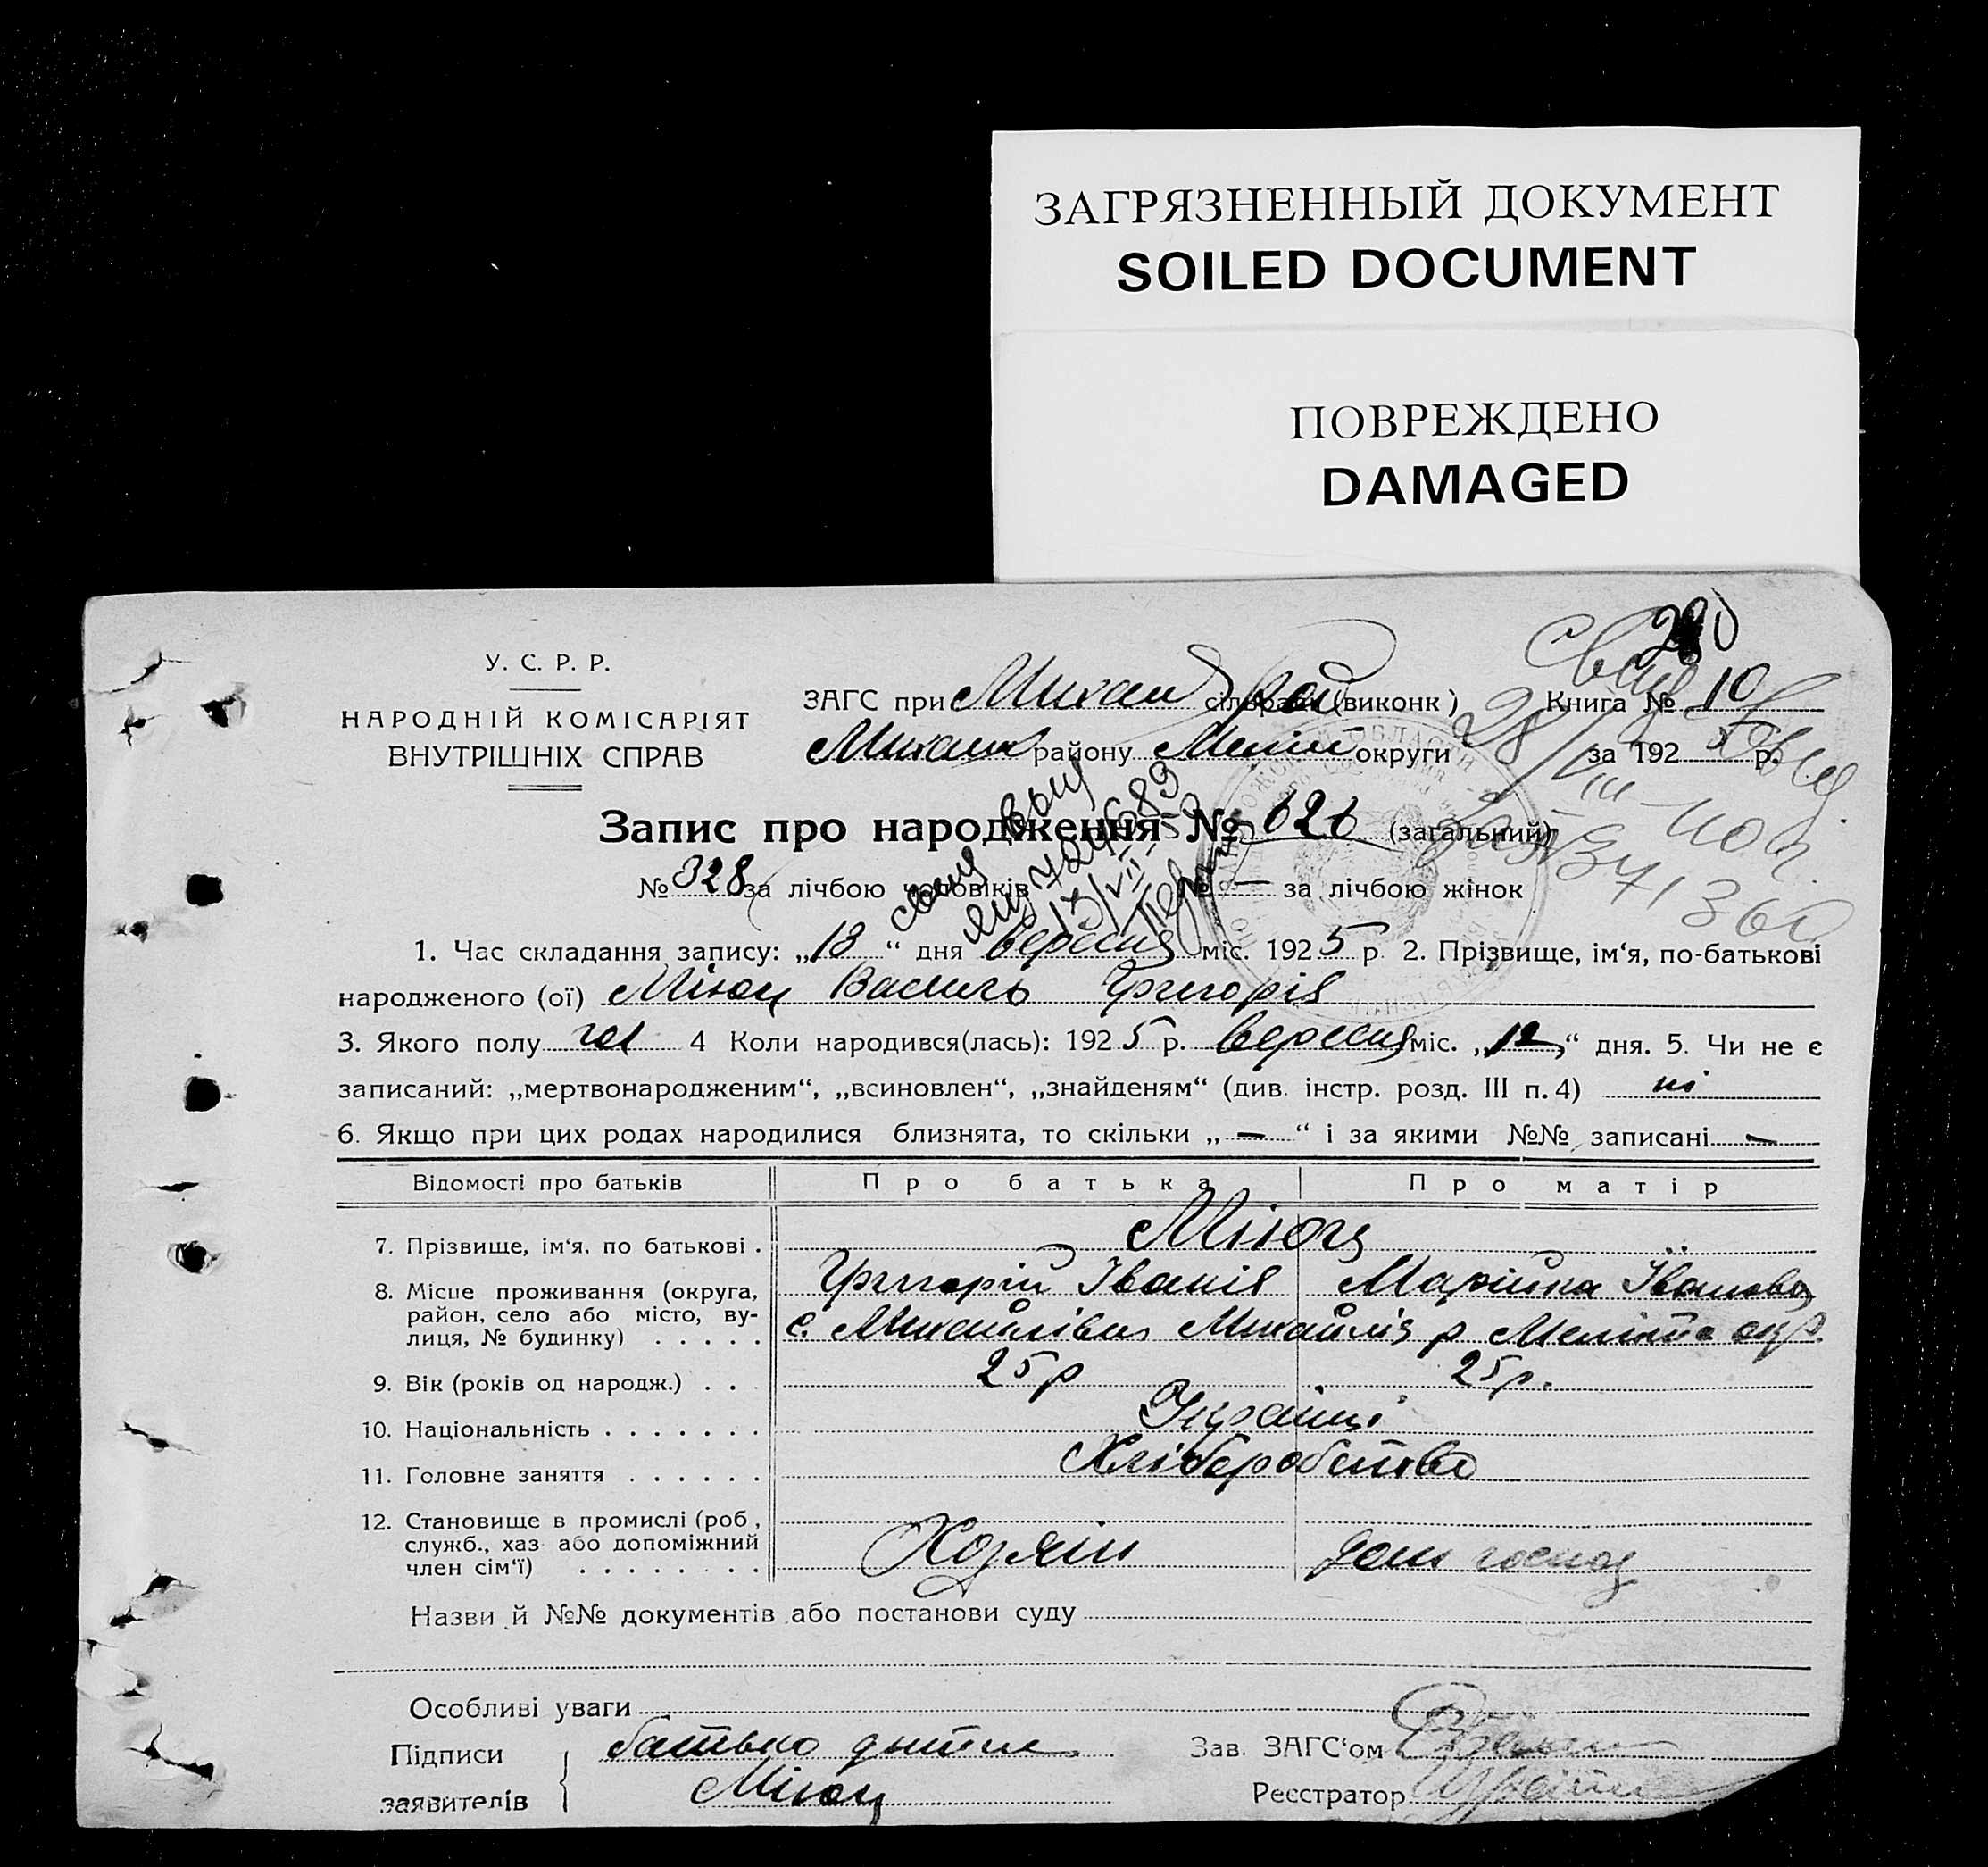 ЗАГРЯЗНЕННЫЙ ДОКУМЕНТ
SOILED DOCUMENT
ПОВРЕЖДЕНО
DAMAGED
280
У. С. Р. Р.
НАРОДНІЙ КОМІСАРІЯТ
ВНУТРІШНІХ СПРАВ
ЗАГС при Михай рай сільради (виконк ) Книга № 10
Михайл району Меліт округи за 1925 р.
28/VIII
Запис про народження № 626 (загальний)
№ 328 за лічбою чоловіків № — за лічбою жінок
1. Час складання запису: „18“ дня вересня міс. 1925 р. 2. Прізвище, ім‘я, по-батькові
народженого (ої) Мінош Василь Григорів
3. Якого полу чол 4 Коли народився(лась): 1925 р. вересня міс. „12“ дня. 5. Чи не є
записаний: „мертвонародженим“, „всиновлен“, „знайденям“ (див. інстр. розд. III п. 4) ні
6. Якщо при цих родах народилися близнята, то скільки „—“ і за якими №№ записані —
Відомості про батьків Про батька Про матір
7. Прізвище, ім‘я, по батькові .
Григорій Іванів Марійка Іванова
8. Місце проживання (округа, район, село або місто, ву-
лиця, № будинку) . . . . . с. Михайлівка Михайлів р Меліт окр.
9. Вік (років од народж.) . . . 25 р 25 р.
10. Національність . . . . . . . Українці
11. Головне заняття . . . . . . Хліборобство
12. Становище в промислі (роб.,
служб., хаз або допоміжний
член сім‘ї) . . . . . . . . Хозяїн дом господ
Назви й №№ документів або постанови суду
Особливі уваги
Підписи батько дитини Зав. ЗАГС‘ом
заявителів Реєстратор